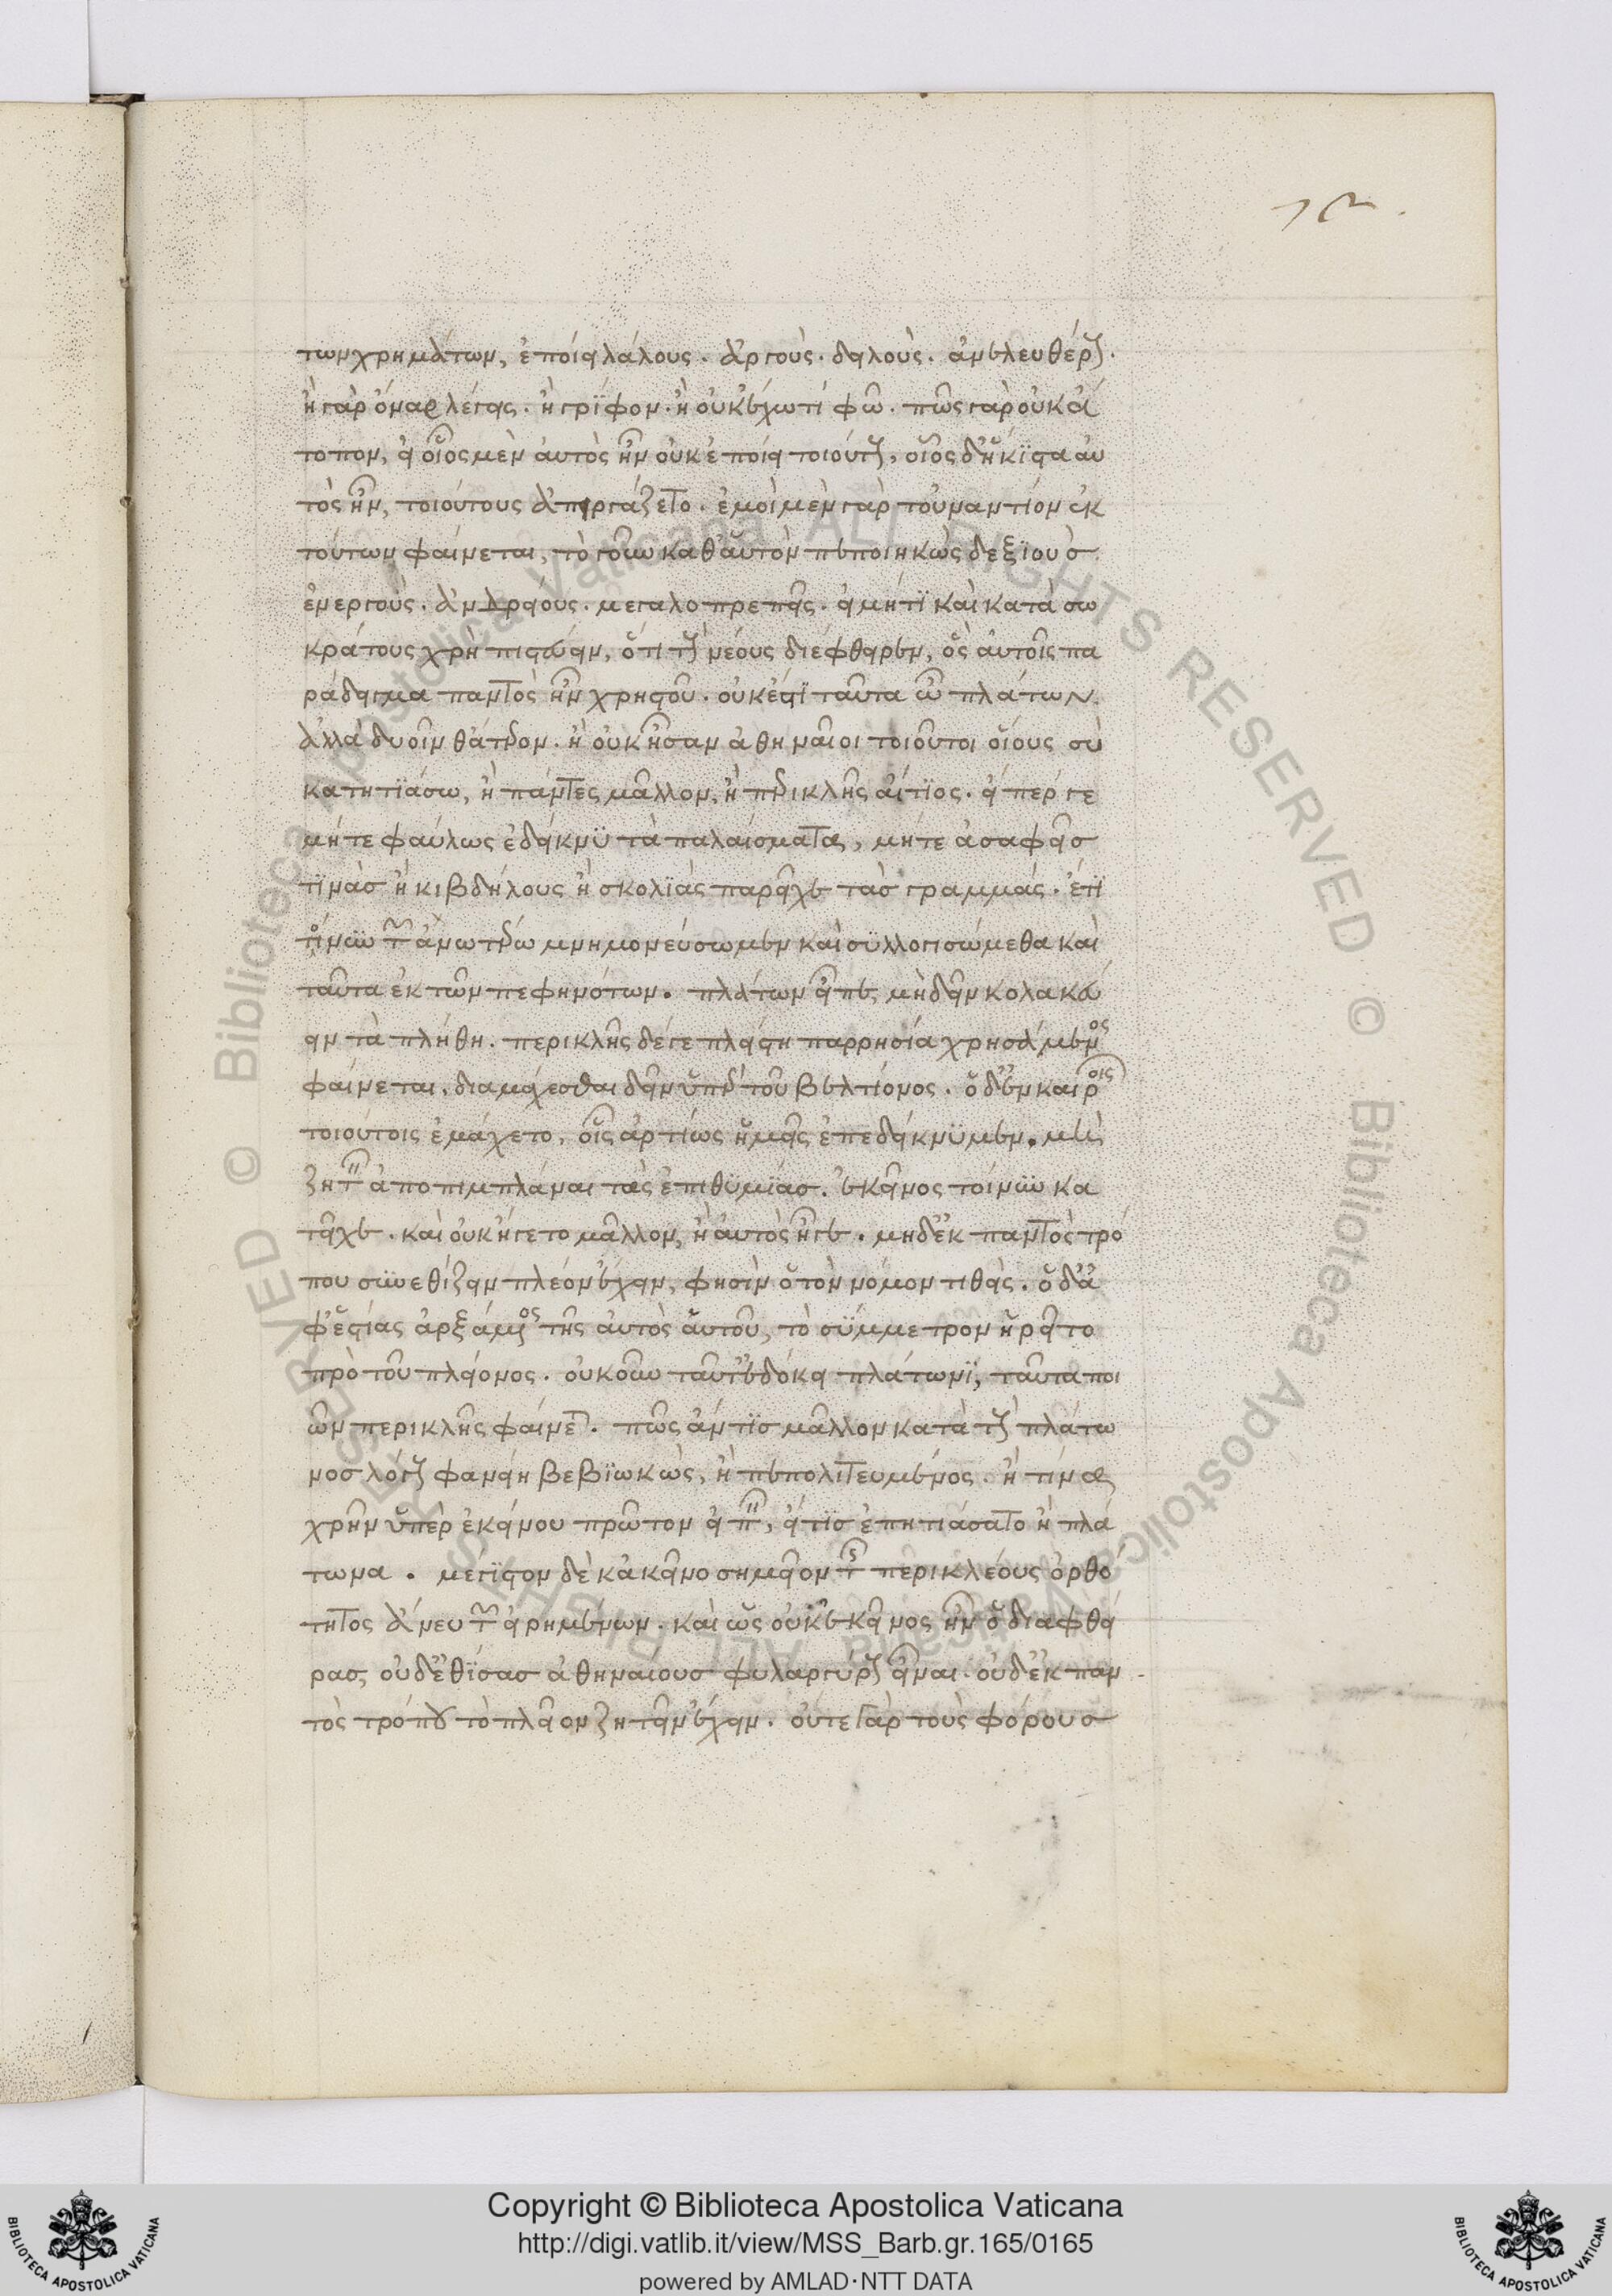 των χρημάτων, ἐποίει λάλους. ἀργοὺς. δειλοὺς. ἀνελευθέρους.
ἢ γὰρ ὄναρ λέγεις. ἢ γρῖφον. ἢ οὐκ ἔχω τί φῶ. πῶς γὰρ οὐκ ἄ
τοπον, εἰ οἷος μὲν αὐτὸς ἦν οὐκ ἐποίει τοιούτους, οἷος δ' ἥκιστα αὐ
τὸς ἦν, τοιούτους ἀπειργάζετο. ἐμοὶ μὲν γὰρ τοὐναντίον ἐκ
τούτων φαίνεται, τὸ γοῦν καθ' αὑτὸν πεποιηκὼς δεξιοὺσ
ἐνεργοὺς. ἀνδρείους. μεγαλοπρεπεῖς. εἰ μήτι καὶ κατὰ σω
κράτους χρὴ πιστεύειν, ὅτι τοὺς νέους διέφθειρεν, ὃς αὐτοῖς πα
ράδειγμα παντὸς ἦν χρηστοῦ. οὐκ ἔστι ταῦτα ὦ πλάτων.
ἀλλὰ δυοῖν θάτερον. ἢ οὐκ ἦσαν ἀθηναῖοι τοιοῦτοι οἵους σὺ
κατητιάσω, ἢ πάντες μᾶλλον, ἢ περικλῆς αἴτιος. εἴπερ γε
μήτε φαύλως ἐδείκνυ τὰ παλαίσματα, μήτε ἀσαφεῖσ
τινὰσ ἢ κιβδήλους ἢ σκολιὰς παρεῖχε τὰσ γραμμάς. ἔτι
τοίνυν τῶν ἀνωτέρω μνημονεύσωμεν καὶ συλλογισώμεθα καὶ
ταῦτα ἐκ τῶν πεφηνότων. πλάτων εἶπε, μὴ δεῖν κολακεύ
ειν τὰ πλήθη. περικλῆς δέ γε πλείστη παρρησία χρησάμενος
φαίνεται. διαμάχεσθαι δεῖν ὑπὲρ τοῦ βελτίονος. ὁ δ' ἐν καιροῖς
τοιούτοις ἐμάχετο, οἷς ἀρτίως ἡμεῖς ἐπεδείκνυμεν. μὴ
ζητεῖν ἀποπιμπλάναι τὰς ἐπιθυμίασ. ἐκεῖνος τοίνυν κα
τεῖχε. καὶ οὐκ ἤγετο μᾶλλον, ἢ αὐτὸς ἦγε. μηδ' ἐκ παντὸς τρό
που συνεθίζειν πλέον ἔχειν, φησὶν ὁ τὸν νόμον τιθεὶς. ὁ δ' ἀ
φ' ἑστίας ἀρξάμενος τῆς αὐτὸς αὑτοῦ, τὸ σύμμετρον ἡρεῖτο
πρὸ τοῦ πλείονος. οὐκοῦν ταῦτ' ἐδόκει πλάτωνι, ταῦτα ποι
ῶν περικλῆς φαίνεται. πῶς ἄν τισ μᾶλλον κατὰ τοὺς πλάτω
νοσ λόγους φανείη βεβιωκὼς, ἢ πεπολιτευμένος. ἢ τίνα
χρῆν ὑπὲρ ἐκείνου πρῶτον εἰπεῖν, εἴ τισ ἐπητιάσατο ἢ πλά
τωνα. μέγιστον δὲ κἀκεῖνο σημεῖον τῆς περικλέους ὀρθό
τητος ἄνευ τῶν εἰρημένων. καὶ ὡς οὐκ ἐκεῖνος ἦν ὁ διαφθεί
ρας, οὐδ' ἐθίσασ ἀθηναίουσ φυλαργύρους εἶναι. οὐδ' ἐκ παν
τὸς τρόπου τὸ πλεῖον ζητεῖν ἔχειν. οὔτε γὰρ τοὺς φόρουσ
Copyright © Biblioteca Apostolica Vaticana
http://digi.vatlib.it/view/MSS_Barb.gr.165/0165
powered by AMLAD·NTT DATA